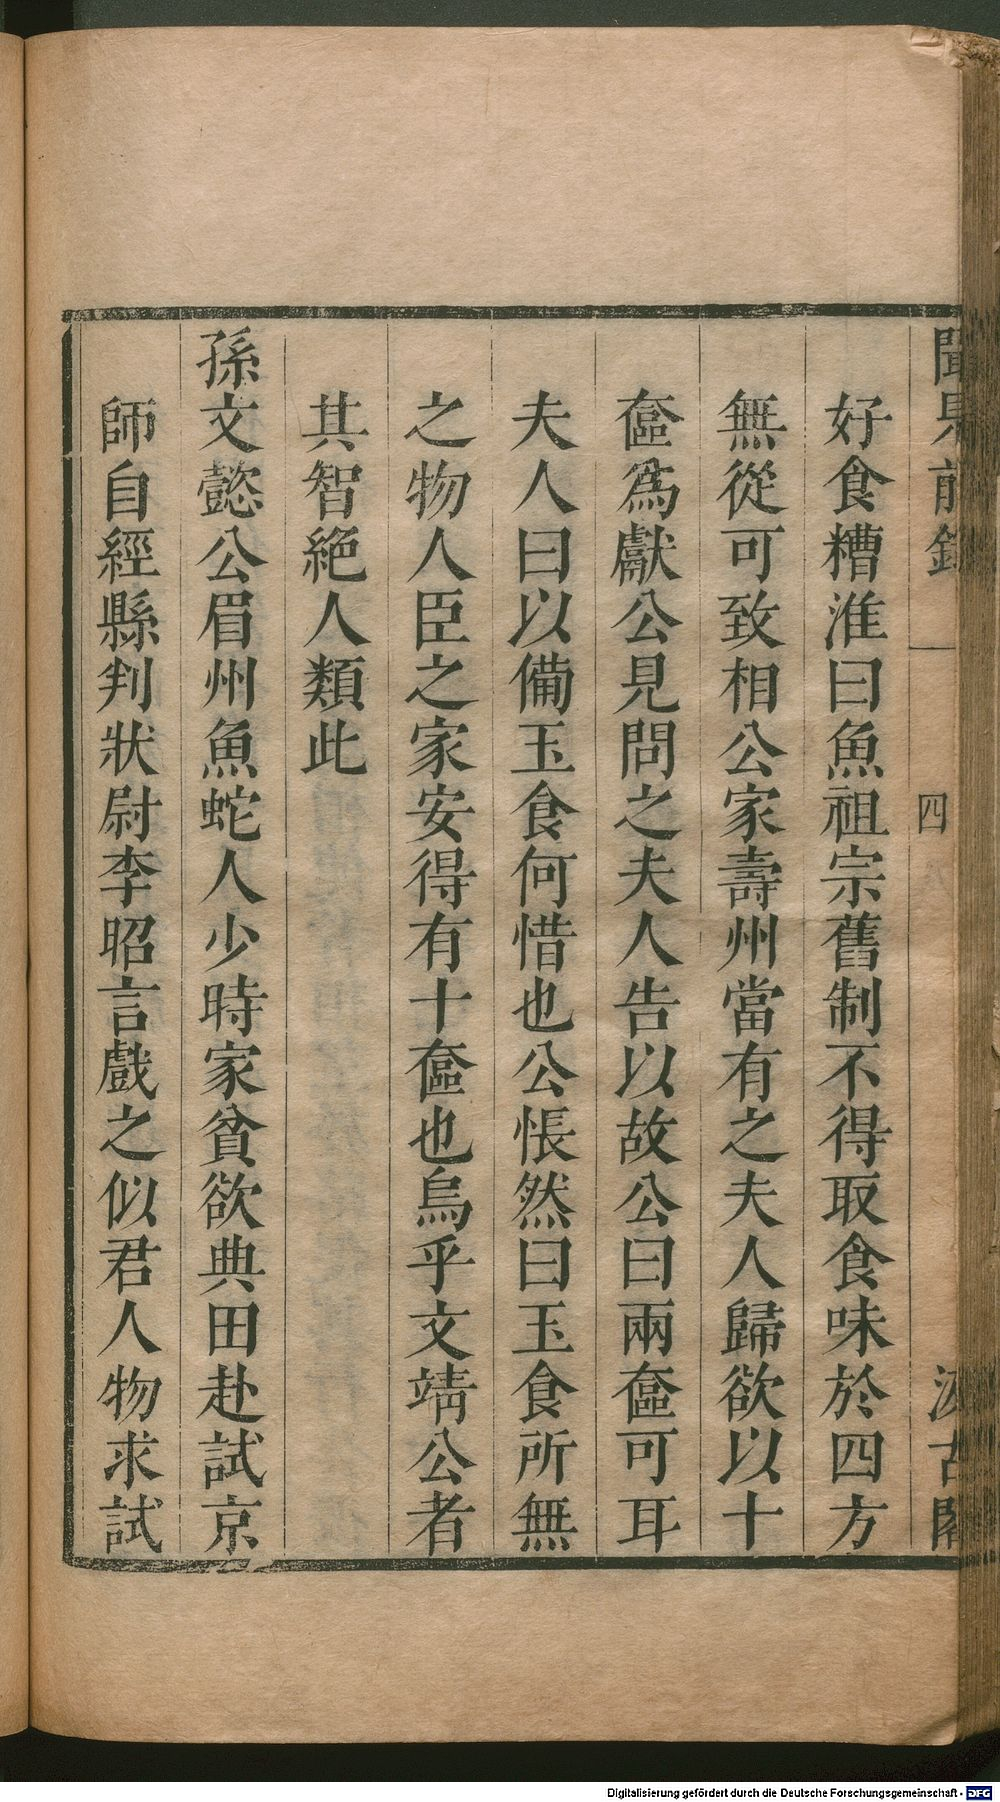 聞見前錄
四
汲古閣
好食糟淮白魚祖宗舊制不得取食味於四方
無從可致相公家壽州當有之夫人歸欲以十
奩爲獻公見問之夫人告以故公曰兩奩可耳
夫人曰以備玉食何惜也公悵然曰玉食所無
之物人臣之家安得有十奩也烏乎文靖公者
其智絕人類此
孫文懿公眉州魚蛇人少時家貧欲典田赴試京
師自經縣判狀尉李昭言戲之似君人物求試
Digitalisierung gefördert durch die Deutsche Forschungsgemeinschaft - DFG